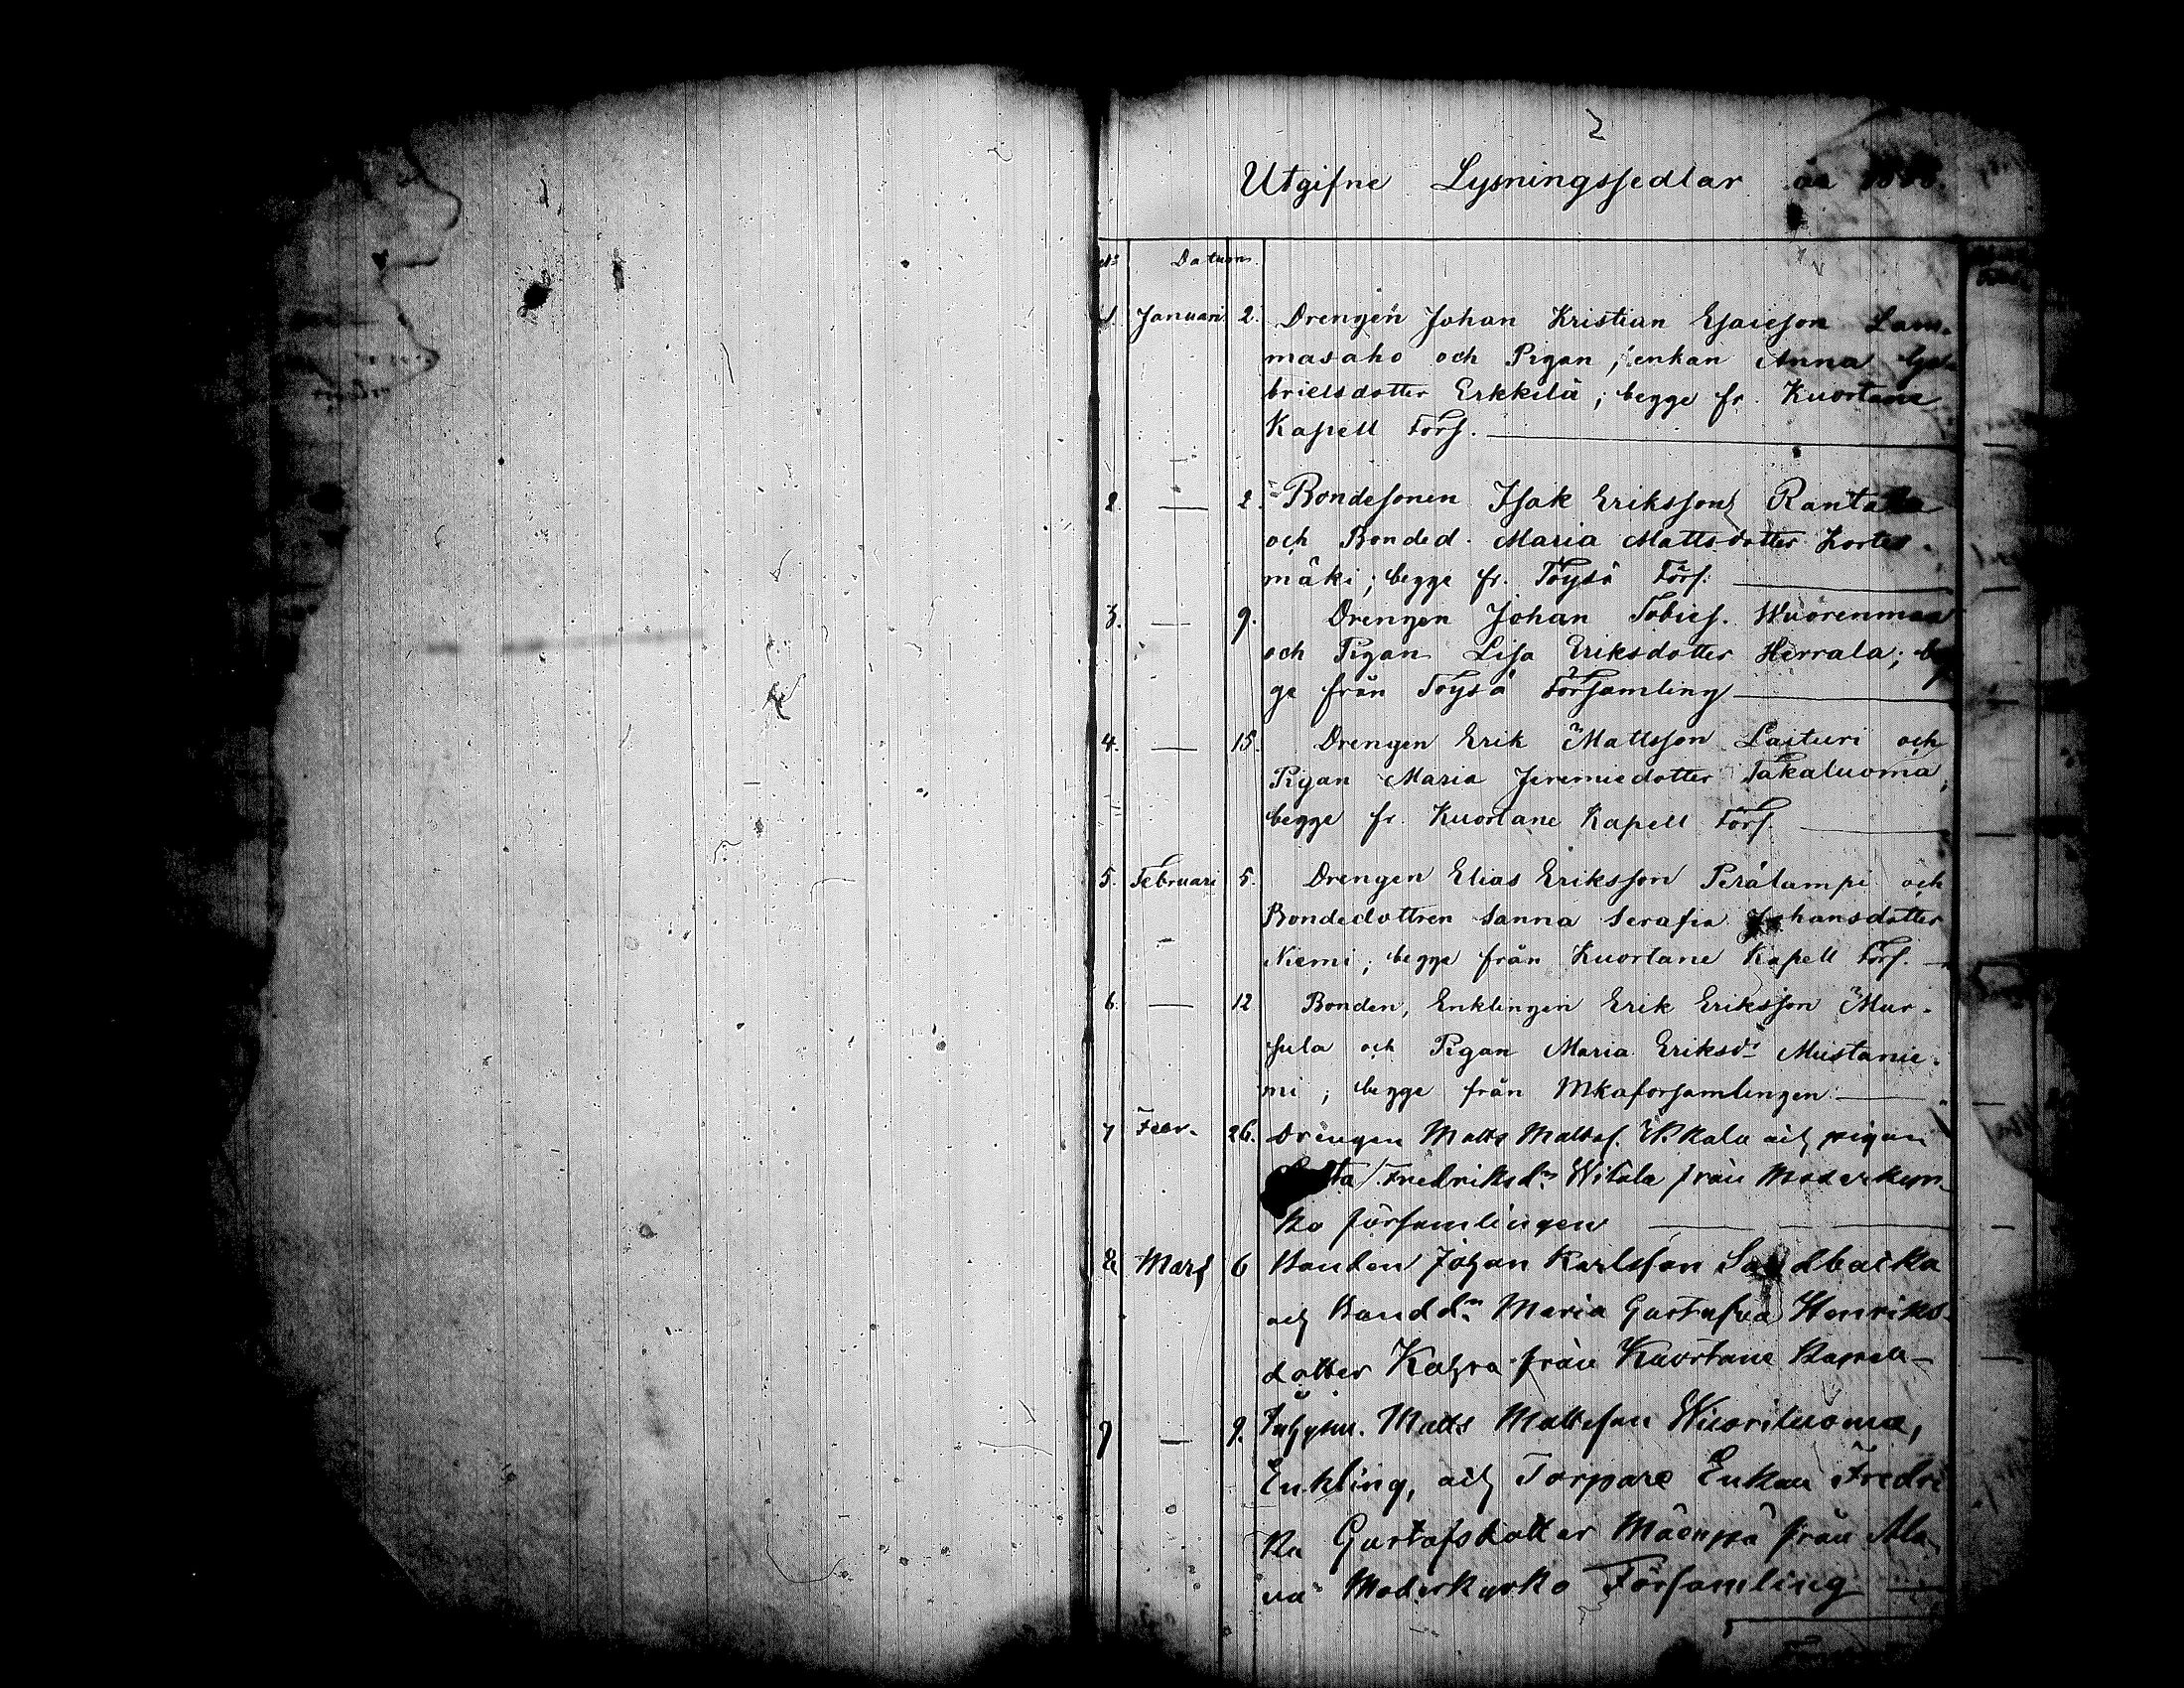 2
Utgifne Lysningssedlar
No Datum.
1. Januari 2. Drengen Johan Kristian Esaiesson Lam-
masaho och Pigan, enkan Anna Ga-
brielsdotter Erkkilä; begge fr. Kuortane
Kapell Förs.
2. — 2. Bondesonen Isak Eriksson
och Bonded. Maria Mattsdotter Kortes-
mäki; begge fr. Töysä Förs.
3. — 9. Drengen Johan Tobiess. Wuorenmaa
och Pigan Lisa Eriksdotter Herrala; beg-
ge från Töysä Församling
4. — 15. Drengen Erik Mattsson Laituri och
Pigan Maria Jeremiedotter Takaluoma,
begge fr. Kuortane Kapell Förs.
5. Februari 5. Drengen Elias Eriksson Perälampi och
Bondedottren Sanna Serafia Johansdotter
Niemi; begge från Kuortane Kapell Förs.
6. — 12 Bonden, Enklingen Erik Eriksson Mur-
sula och Pigan Maria Eriksdr Mustanie-
mi; begge från Mkaförsamlingen
7 Febr. 26. Drengen Matts Mattss. och pigan
Fredriksdr Witala från Moderkyr-
ko församlingen
8 Mars 6 Bonden Johan Karlsson Sandbacka
och Bonddn Maria Gustafva Henriks-
dotter från Kuortane Kapell
9 — 9. Inhysn. Matts Mattsson Wuoriluoma,
Enkling, och Torpare Enkan Fredri
ka Gustafsdotter Mäenpää från Ala
vo Moderkyrko Församling